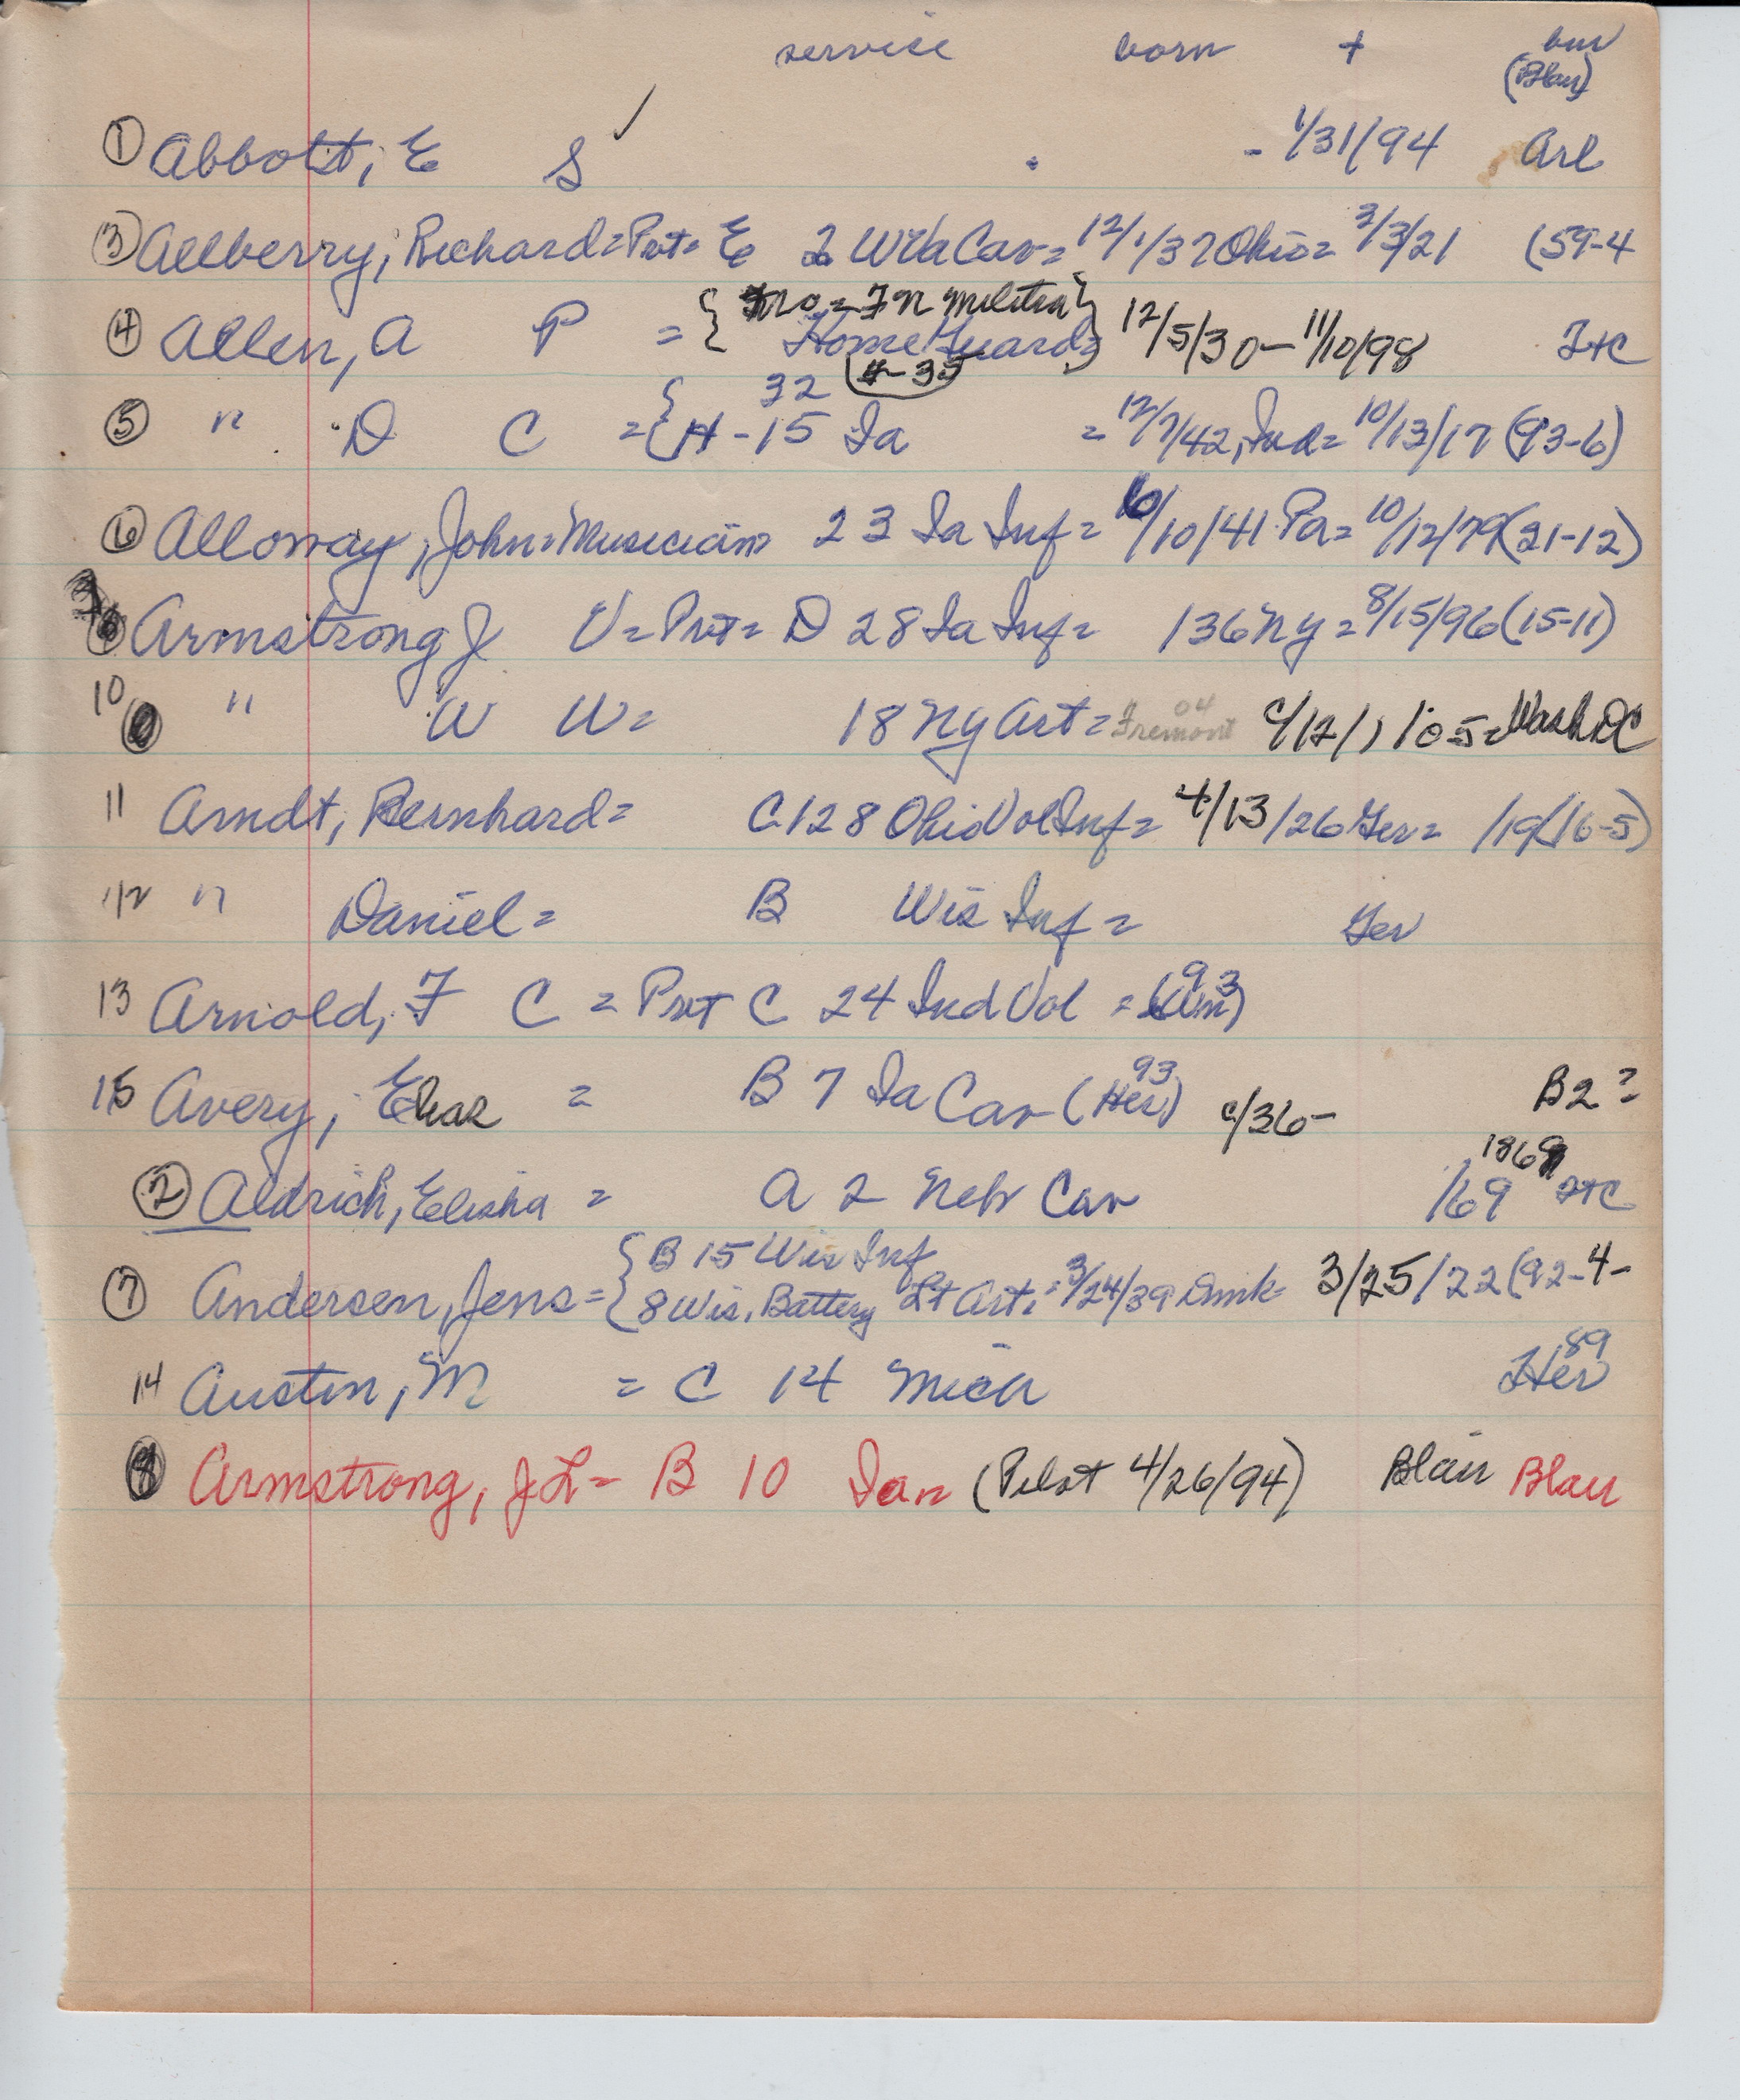 service born + bur
(Blair)
① Abbott, E S ✓ - 1/31/94 Arl
③ Allberry, Richard = Pvt = E 2 W Va Cav = 12/1/37 Ohio = 3/3/21 (59-4
{ Mo = F N Militia }
④ Allen, A P = Home Guard = 12/5/30 - 11/10/98 Ft C
(H-35
32
⑤ " D C = { H - 15 Ia = 12/7/42, Ind = 10/13/17 (93-6)
⑥ Alloway, John = Musician = 23 Ia Inf = 10/10/41 Pa = 10/12/79 (21-12)
Armstrong J V = Pvt = D 28 Ia Inf = 136 NY = 8/15/96 (15-11)
04
10 " W W = 18 NY Art = Fremont c/12/1/05 = Wash DC
11 Arndt, Bernhard = C 128 Ohio Vol Inf = 4/13/26 Ger = /19 (16-5)
12 " Daniel = B Wis Inf = Ger
93
13 Arnold, F C = Pvt C 24 Ind Vol =
93
15 Avery, Elias = B 7 Ia Cav (Her) c/36 - B2 ?
1869
② Aldrich, Elisha = A 2 Nebr Cav /69 Ft C
{ B 15 Wis Inf
⑦ Andersen, Jens = { 8 Wis. Battery Lt Art. = 3/24/39 Dmk = 3/25/22 (92-4-
89
14 Austin, M = C 14 Mich Her
8 Armstrong, J L = B 10 Ia (Pilot 4/26/94) Blair Blair